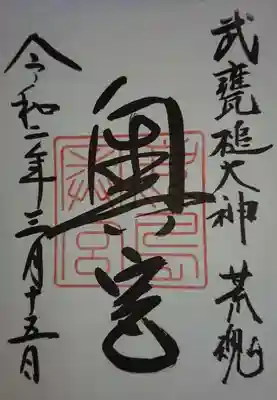 武甕槌大神 荒魂
奥宮
令和二年三月十五日